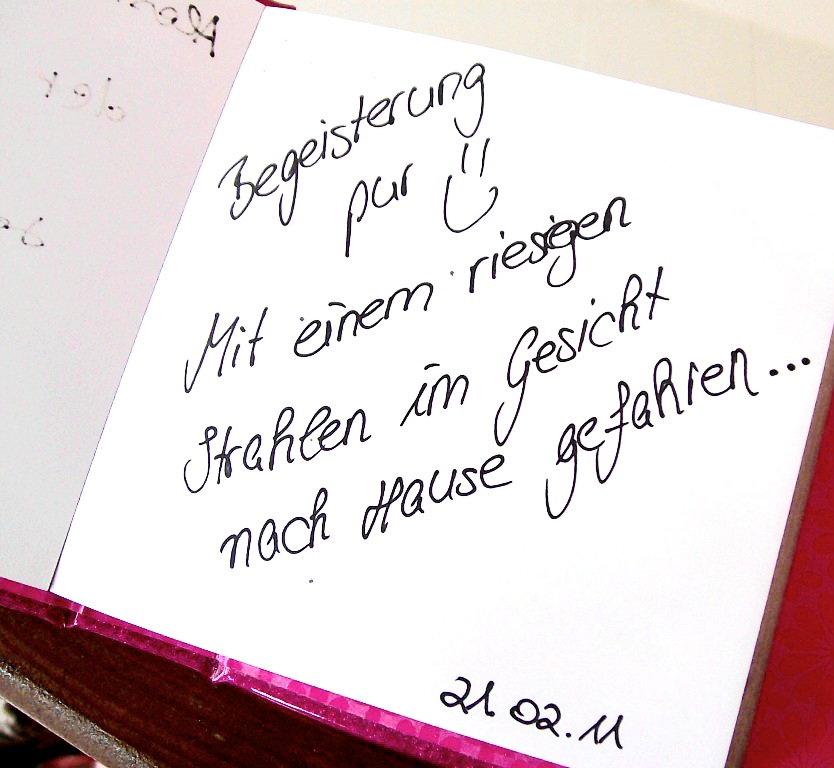 Begeisterung
pur
Mit einem riesigen
Strahlen im Gesicht
nach Hause gefahren...
21.02.11